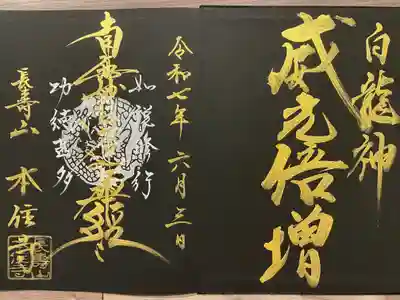 白龍神
威光倍増
令和七年六月三日
如説修行
南無妙法蓮華経
功徳甚多
長寿山 本住寺